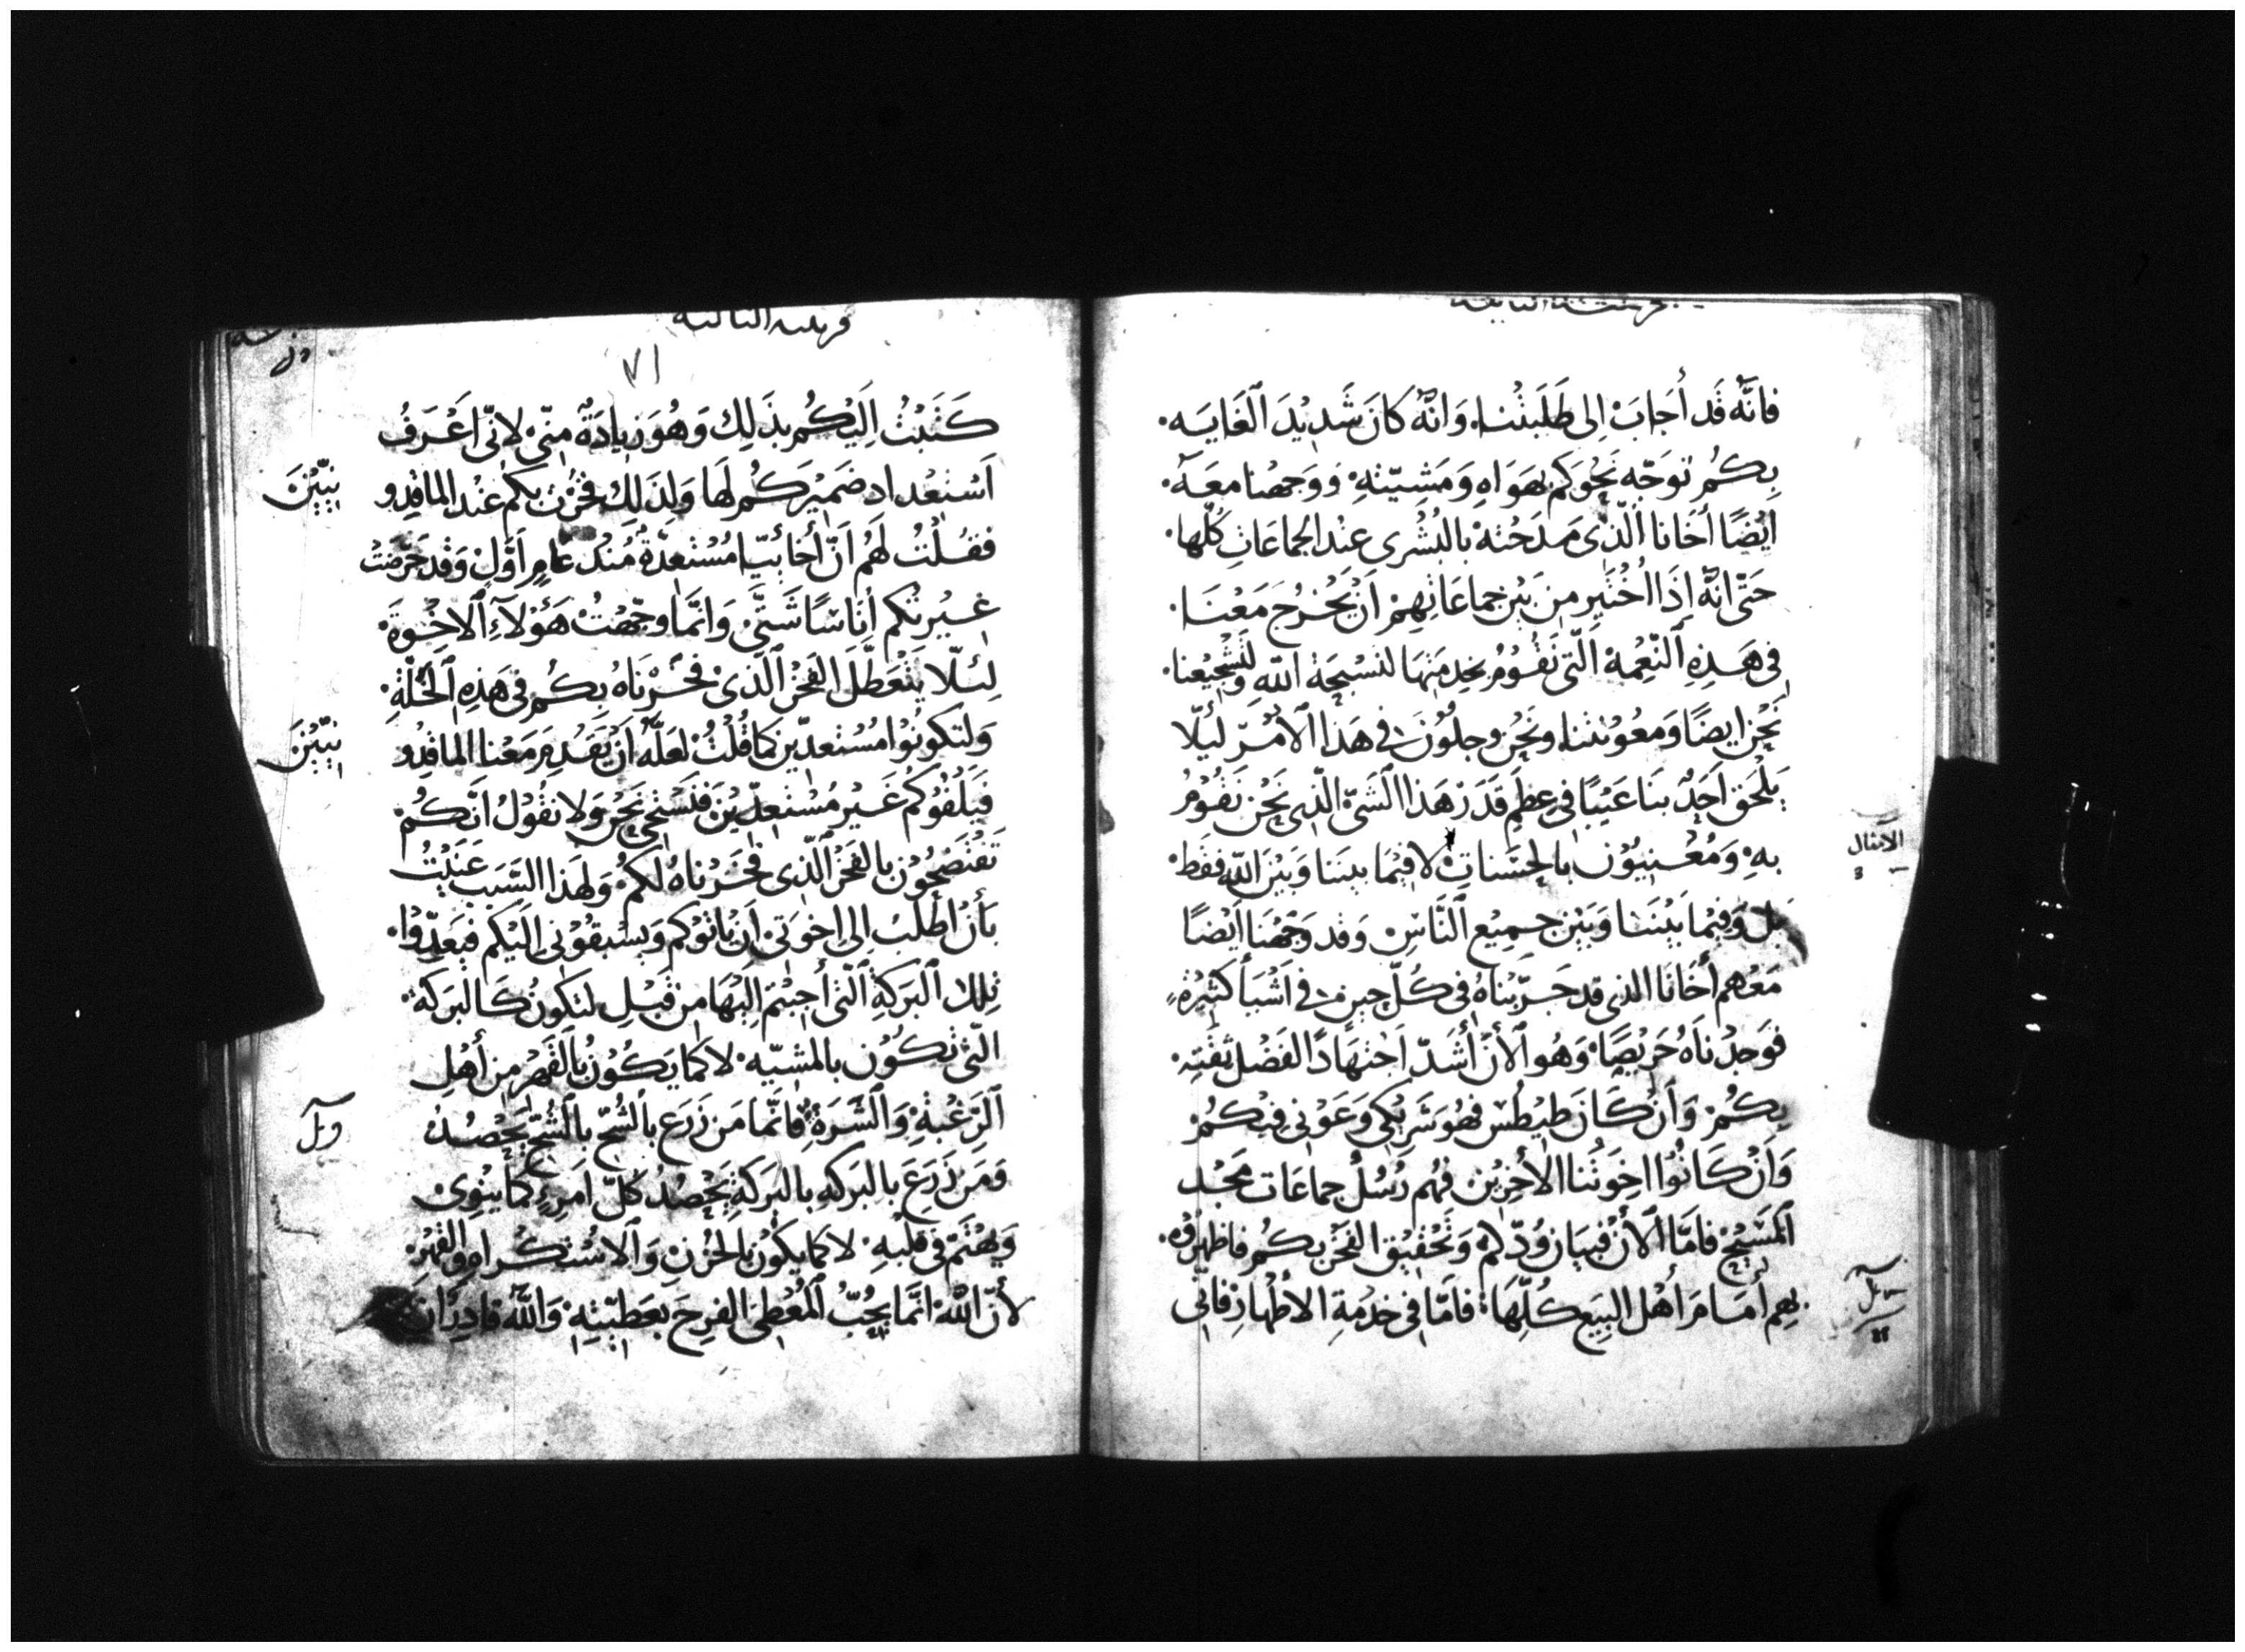 فانَّه قَد أجَابَ اِلى طَلبَتْنا. وَانّهُ كانَ شَديْدَ ٱلعَنايَه.
بِكُم توَجّه نَحْوَكم بهَوَاهِ وَمَشِيّتهِ. وَوَجهْنا معَهُ.
ايْضًا أخَانا الّذى مَدحَتهُ بالبُشْرى عنْد الجماعَاتِ كُلّها.
حَتّى انّهُ إذَا اُخْتيرَ من بَيْن جماعَاتهِمْ اَن يَخْرُج مَعْنَا.
فى هَذِهِ ٱلنّعْمهْ الّتى نَقُوْمُ بخدمَتهَا لتسْبحَة اللهِ وَلتشْجيْعنا
نَحْن ايضًا وَمعُوْنتنا. ونَحْن وجلُوْنَ فى هَذا ٱلأمْر لئلّا
يَلْحَق اَحَدٌ بنا عَيْبًا فى عظَمِ قَدَر هَذا الشَىّ الّذى نَحْن نَقُومُ
بهِ. وَمُعْنيُوْن بالحسَناتِ لا فيْمَا بيننا وَبَيْنَ اللّٰه فقط.
بَل وَفيْما بَيْننَا وَبَيْن جميْع ٱلنَّاسِ وَقد وَجّهْنَا اَيْضًا
مَعْهم أخَانَا الذى قد جَرّبْناهُ فى كُلّ حين فى اَشْيَأ كثيْرَة
فوَجدْناهُ حَريْصًا. وَهُو ٱلأنْ أشَدّ اَجتهَادًا لفَضْل ثقَتِه.
بِكُمْ. وَأنْ كَانَ طيْطُس فهُوَ شَريْكى وَعَوْنى فيْكُمْ
وَأنْ كَانُوْا اخوَتُنا الأخريْن فهُم رَسُلُ جماعَات مَجْد
ٱلمَسيْح فامّا ٱلأنْ فبيَان وُدّكم وَتحْقيْق الفخْر بكُم فاظهرُوْه.
بهِم أمَامَ أهْل البيَع كُلّهَا: فأمّا فى خدْمَة الأطْهارِ فانّى
الأمثال
كَتَبْتُ اِلَيْكُم بذَلِك وَهُوَ زيادَةٌ منّى. لانّى اَعْرَفُ
اَسْتعْداد ضَميْرَكُم لَهَا وَلِذَلِكَ فخَرْتُ بكم عنْد الماقِدو
نيّيْنَ
فقُلْتُ لَهُم اَنّ أخائيّا مُسْتعدّةٌ مُنْذ عَامِ اَوَّلْ وَقد حَرّضتْ
غيْرتكم اُنَاسًا شتّىْ وَانّمَا وجّهْتُ هَؤلآءِ ٱلاخْوَةَ.
لئلّا يتْعَطّلَ الفَخْر ٱلّذىْ فخَرْنَاهُ بِكُم فى هَذِهِ ٱلخَلّةِ.
وَلتكونُوْا مُسْتعدّيْن كما قُلْتُ لعَلّهُ اَنْ يَقدمَ مَعْنا الماقدُو
نيّيْنَ
فيَلْقُوكم غَيْر مُسْتعِدّيْنَ فنَسْتحى نَحْن وَلا نقُوْلُ أنّكُمْ
تَفْتضحُوْن بالفَخْر الّذى فخَرْناهُ لكم. وَلهَذا السَّبَب عَنَيْتُ
بَأنْ أطْلُبَ الى اخوَتىْ اَنْ يَاتوْكم وَيسْبقُوْنى اليْكم فيَعدّوْا.
تلك ٱلبَركةْ الّتى أجبْتم اِليْهَا من قَبْلِ لتكونُ كالبَركَة.
الّتى تكُوْن بالمشيّه. لا كما يَكُوْنُ بالقَهْر من أهْل
ٱلرّغْبةِ وَٱلشَّرَةِ. فانّما مَن زَرَع بالشُحّ بالشُحّ يَحْصُدُ
وَمَن زَرَعَ بالبَركَهِ بالبَركَةِ يَحْصُدُ كلّ اَمرءٍ كما ينْوىْ
وَيهْتَمّ فى قلْبهِ. لا كما يكُوْن بالحُزْنِ وَٱلاسْتكْراهِ وَالقَهْرِ
لأنّ اللّٰه انّمَا يحُبّ ٱلمُعْطىَ الفرِحَ بعَطيّتهِ. وَٱللّٰهُ قَادِرٌ انْ